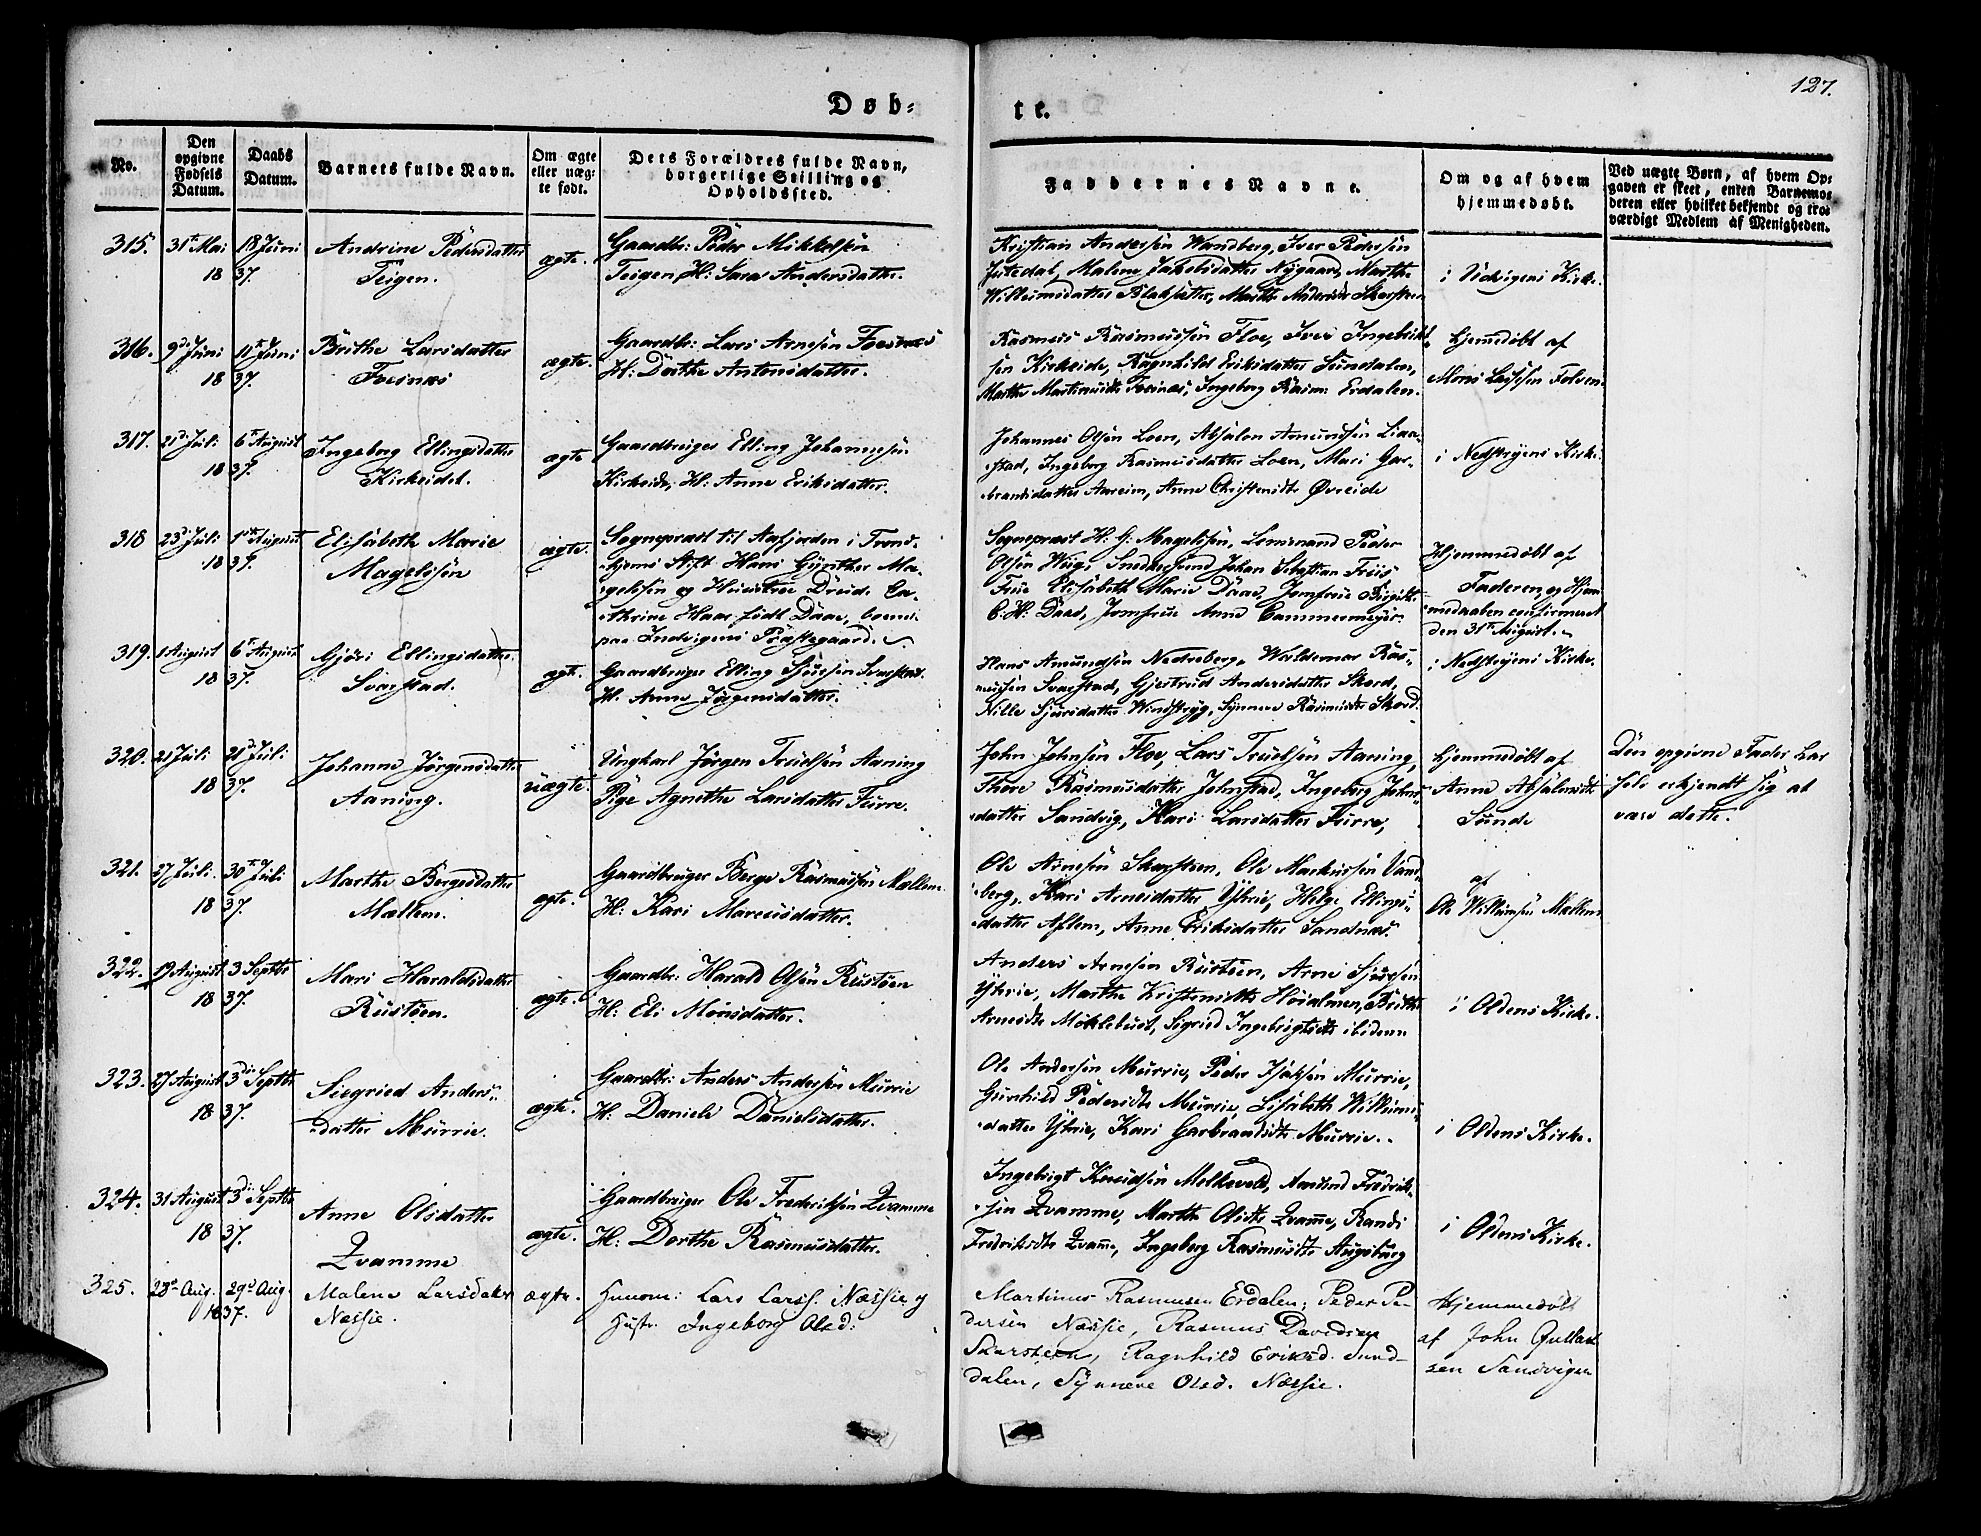 127.
Døb=
te.
No.
Den opgivne Fødsels Datum.
Daabs Datum.
Barnets fulde Navn.
Om ægte eller uæg= te født.
Dets Forældres fulde Navn, borgerlige Stilling og Opholdssted.
Faddernes Navne.
Om og af hvem hjemmedøbt.
Ved uægte Børn, af hvem Op= gaven er skeet, enten Barnemo= deren eller hvilket bekjendt og tro= værdigt Medlem af Menigheden.
315. 31te Mai 18 Juni Andrine Pedersdatter ægte. Gaardbr: Peder Mikkelsen
1837. Teigen. Teigen, H: Sara Andersdatter.
Kristian Andersen Wandberg, Iver Pedersen
Justedal, Malene Jakobsdatter Nygaard, Marthe
Willumsdatter Blaksæter, Marthe Andersdr Skarsteen
i Udvigens Kirke.
316. 9de Juni 11te Juni Brithe Larsdatter ægte. Gaardbr: Lars Arnesen Fosnæs
1837. Fosnæs H: Dorthe Antonsdatter.
Rasmus Rasmussen Floe, Iver Ingebrikt=
sen Kirkeide, Ragnhild Eriksdatter Sundalen,
Marthe Martinusdtr Fosnæs, Ingeborg Rasm: Erdalen.
hjemmedøbt af
Mons Lassesen Folven
317. 21de Juli 6te August Ingeborg Ellingsdatter ægte Gaardbruger Elling Johannesen
1837. Kirkeidet. Kirkeide, H: Anne Eriksdatter.
Johannes Olsen Loen, Absalon Amundsen Liaa=
stad, Ingeborg Rasmusdatter Loen, Mari Gar=
brandsdatter Aareim, Anne Christensdtr Øvreide
i Nedstryens Kirke.
318 23de Juli 1ste August Elisabeth Marie ægte. Sognepræst til Aafjorden i Trond=
1837. Magelssen hjems Stift Hans Gynther Ma=
gelssen og Hustrue Dreid. Ca=
thrine Haar født Daae, boende
paa Indvigens Præstegaard.
Sognepræst H. G. Magelssen, Lensmand Peder
Olsen Wiig, Snedkersvend Johan Sebastian Friis
Frue Elisabeth Marie Daae, Jomfrue Birgitte
C. H: Daae, Jomfrue Anne Cammermeyer.
Hjemmedøbt af
Faderen og Hjem=
medaaben confirmeret
den 31te August.
319. 1 August 6te August Gjøri Ellingsdatter ægte. Gaardbruger Elling Sjursen Svarstad.
1837. Svarstad. H: Anne Jørgensdatter.
Hans Amundsen Nedreberg, Waldemar Ras=
mussen Svarstad, Gjertrud Andersdatter Skord,
Nille Sjursdatter Windstryg, Synneve Rasmusdtr Skord.
i Nedstryens Kirke.
320. 21 Juli 21de Juli Johanne Jørgensdatter uægte. Ungkarl Jørgen Truelsen Aaning
1837. Aaning. Pige Agnethe Larsdatter Furre.
John Johnsen Floe, Lars Truelsen Aaning,
Thore Rasmusdatter Johnstad, Ingeborg Johns=
datter Sandvig, Kari Larsdatter Furre,
hjemmedøbt af
Anne Absalonsdtr
Sunde
Den opgivne Fader har
selv erkjendt sig at
være dette.
321. 27 Juli. 30te Juli Marthe Bergesdatter ægte. Gaardbruger Berge Rasmussen Mællem
1837. Mællem. H: Kari Marcusdatter.
Ole Arnesen Skarsteen, Ole Markussen Vand=
berg, Kari Arnesdatter Ytrie, Helge Ellings=
datter Aflem, Anne Eriksdatter Sandnæs.
af
Ole Willumsen Mællem
322. 19 August 3 Septbr Mari Haraldsdatter ægte. Gaardbr: Harald Olsen Rustøen
1837. Rustøen. H: Eli Monsdatter.
Anders Arnesen Rustøen, Arne Sjursen
Ytrie, Marthe Kristensdtr Høialmen, Brithe
Arnesdtr Möklebust, Sigried Ingebrigtsdtr ibidem
i Oldens Kirke.
323. 27 August 3die Septbr Siegried Anders= ægte. Gaardbr: Anders Andersen Murrie
1837. datter Murrie. H: Daniele Danielsdatter.
Ole Andersen Murrie, Peder Isaksen Murrie,
Gunhild Pedersdtr Murrie, Lisabeth Willums=
datter Ytrie, Kari Garbrandsdtr Murrie.
i Oldens Kirke.
324. 31 August 3die Septbr Anne Olsdatter ægte. Gaardbruger Ole Frederiksen Qvamme
1837. Qvamme H: Dorthe Rasmusdatter.
Ingebrigt Knudsen Melkevold, Amund Fredrik=
sen Qvamme, Marthe Olsdtr Qvam̄e, Randi
Fredriksdtr Qvam̄e, Ingeborg Rasmusdtr Augsburg
i Oldens Kirke.
325. 28de Aug. 29de Aug. Malene Larsdatter ægte. Huusm: Lars Larss. Næssie og
1837. Næssie. Hustr. Ingeborg Olsd:
Martinus Rasmusen Erdalen, Peder Pe=
dersen Næssie, Rasmus Davidsen
Skarsteen, Ragnhild Eriksd. Sund=
dalen, Synneve Olsd. Næssie.
Hjemmedøbt
af John Gullak
sen Sandvigen